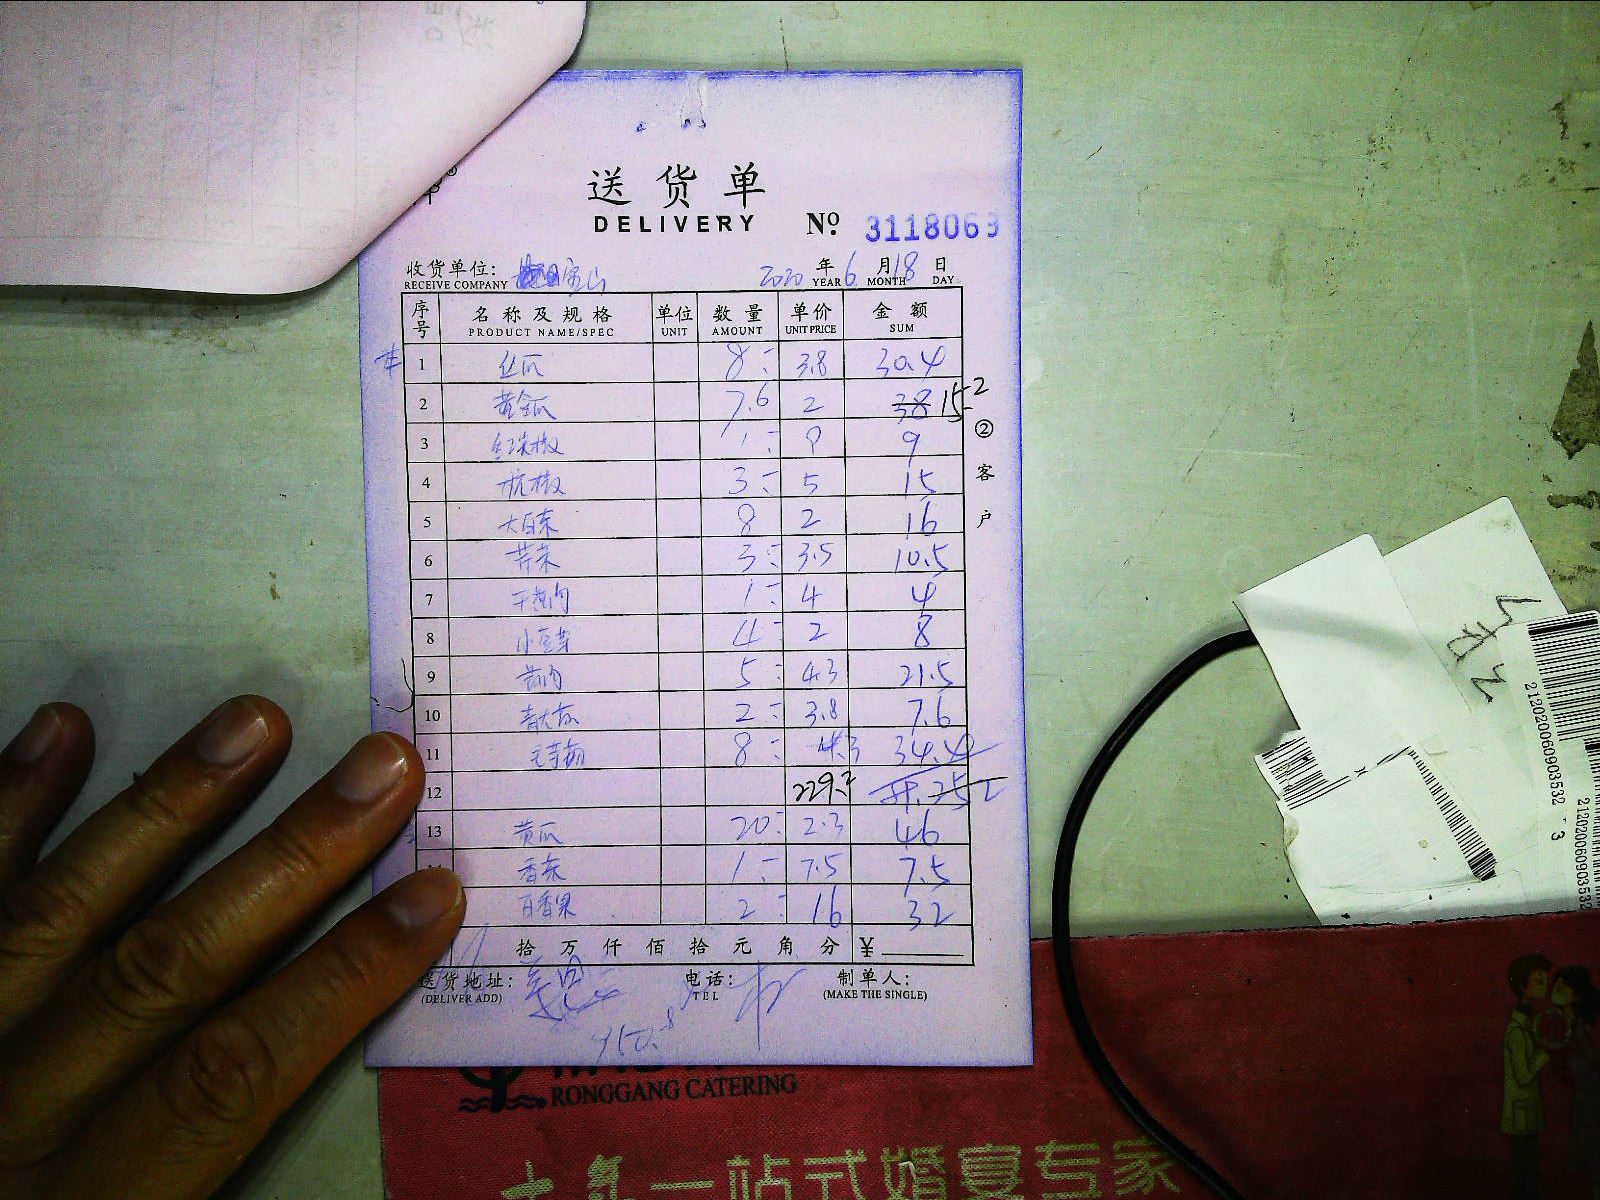 送货单
DELIVERY
No 3118069
收货单位: 宝山 2020年6月18日
RECEIVE COMPANY YEAR MONTH DAY
序号 名称及规格 单位 数量 单价 金额
PRODUCT NAME/SPEC UNIT AMOUNT UNIT PRICE SUM
1 丝瓜 8 3.8 30.4
2 黄金瓜 7.6 2 38 15.2
3 红尖椒 1 9 9
4 杭椒 3 5 15
5 大白菜 8 2 16
6 芹菜 3 3.5 10.5
7 1 4 4
8 小豆芽 4 2 8
9 5 4.3 21.5
10 2 3.8 7.6
11 8 4.3 34.4
12 229.2
13 黄瓜 20 2.3 46
香菜 1 7.5 7.5
百香果 2 16 32
②客户
拾万仟佰拾元角分 ¥
送货地址: 电话: 制单人:
(DELIVER ADD) TEL (MAKE THE SINGLE)
RONGGANG CATERING
一站式婚宴专家
21202060903532 3